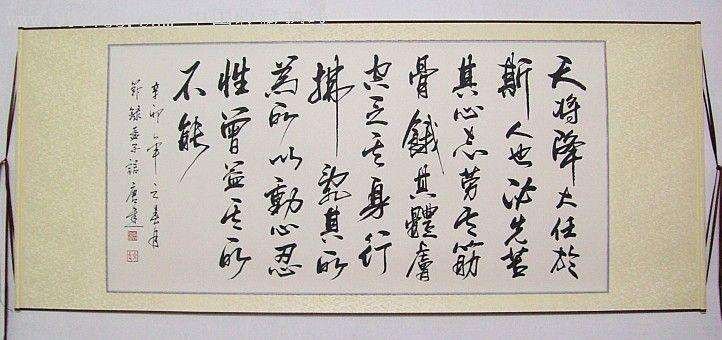 天将降大任於
斯人也必先苦
其心志劳其筋
骨餓其體膚
空乏其身行
拂亂其所
為所以動心忍
性曾益其所
不能
辛卯年之春月
節録孟子語唐